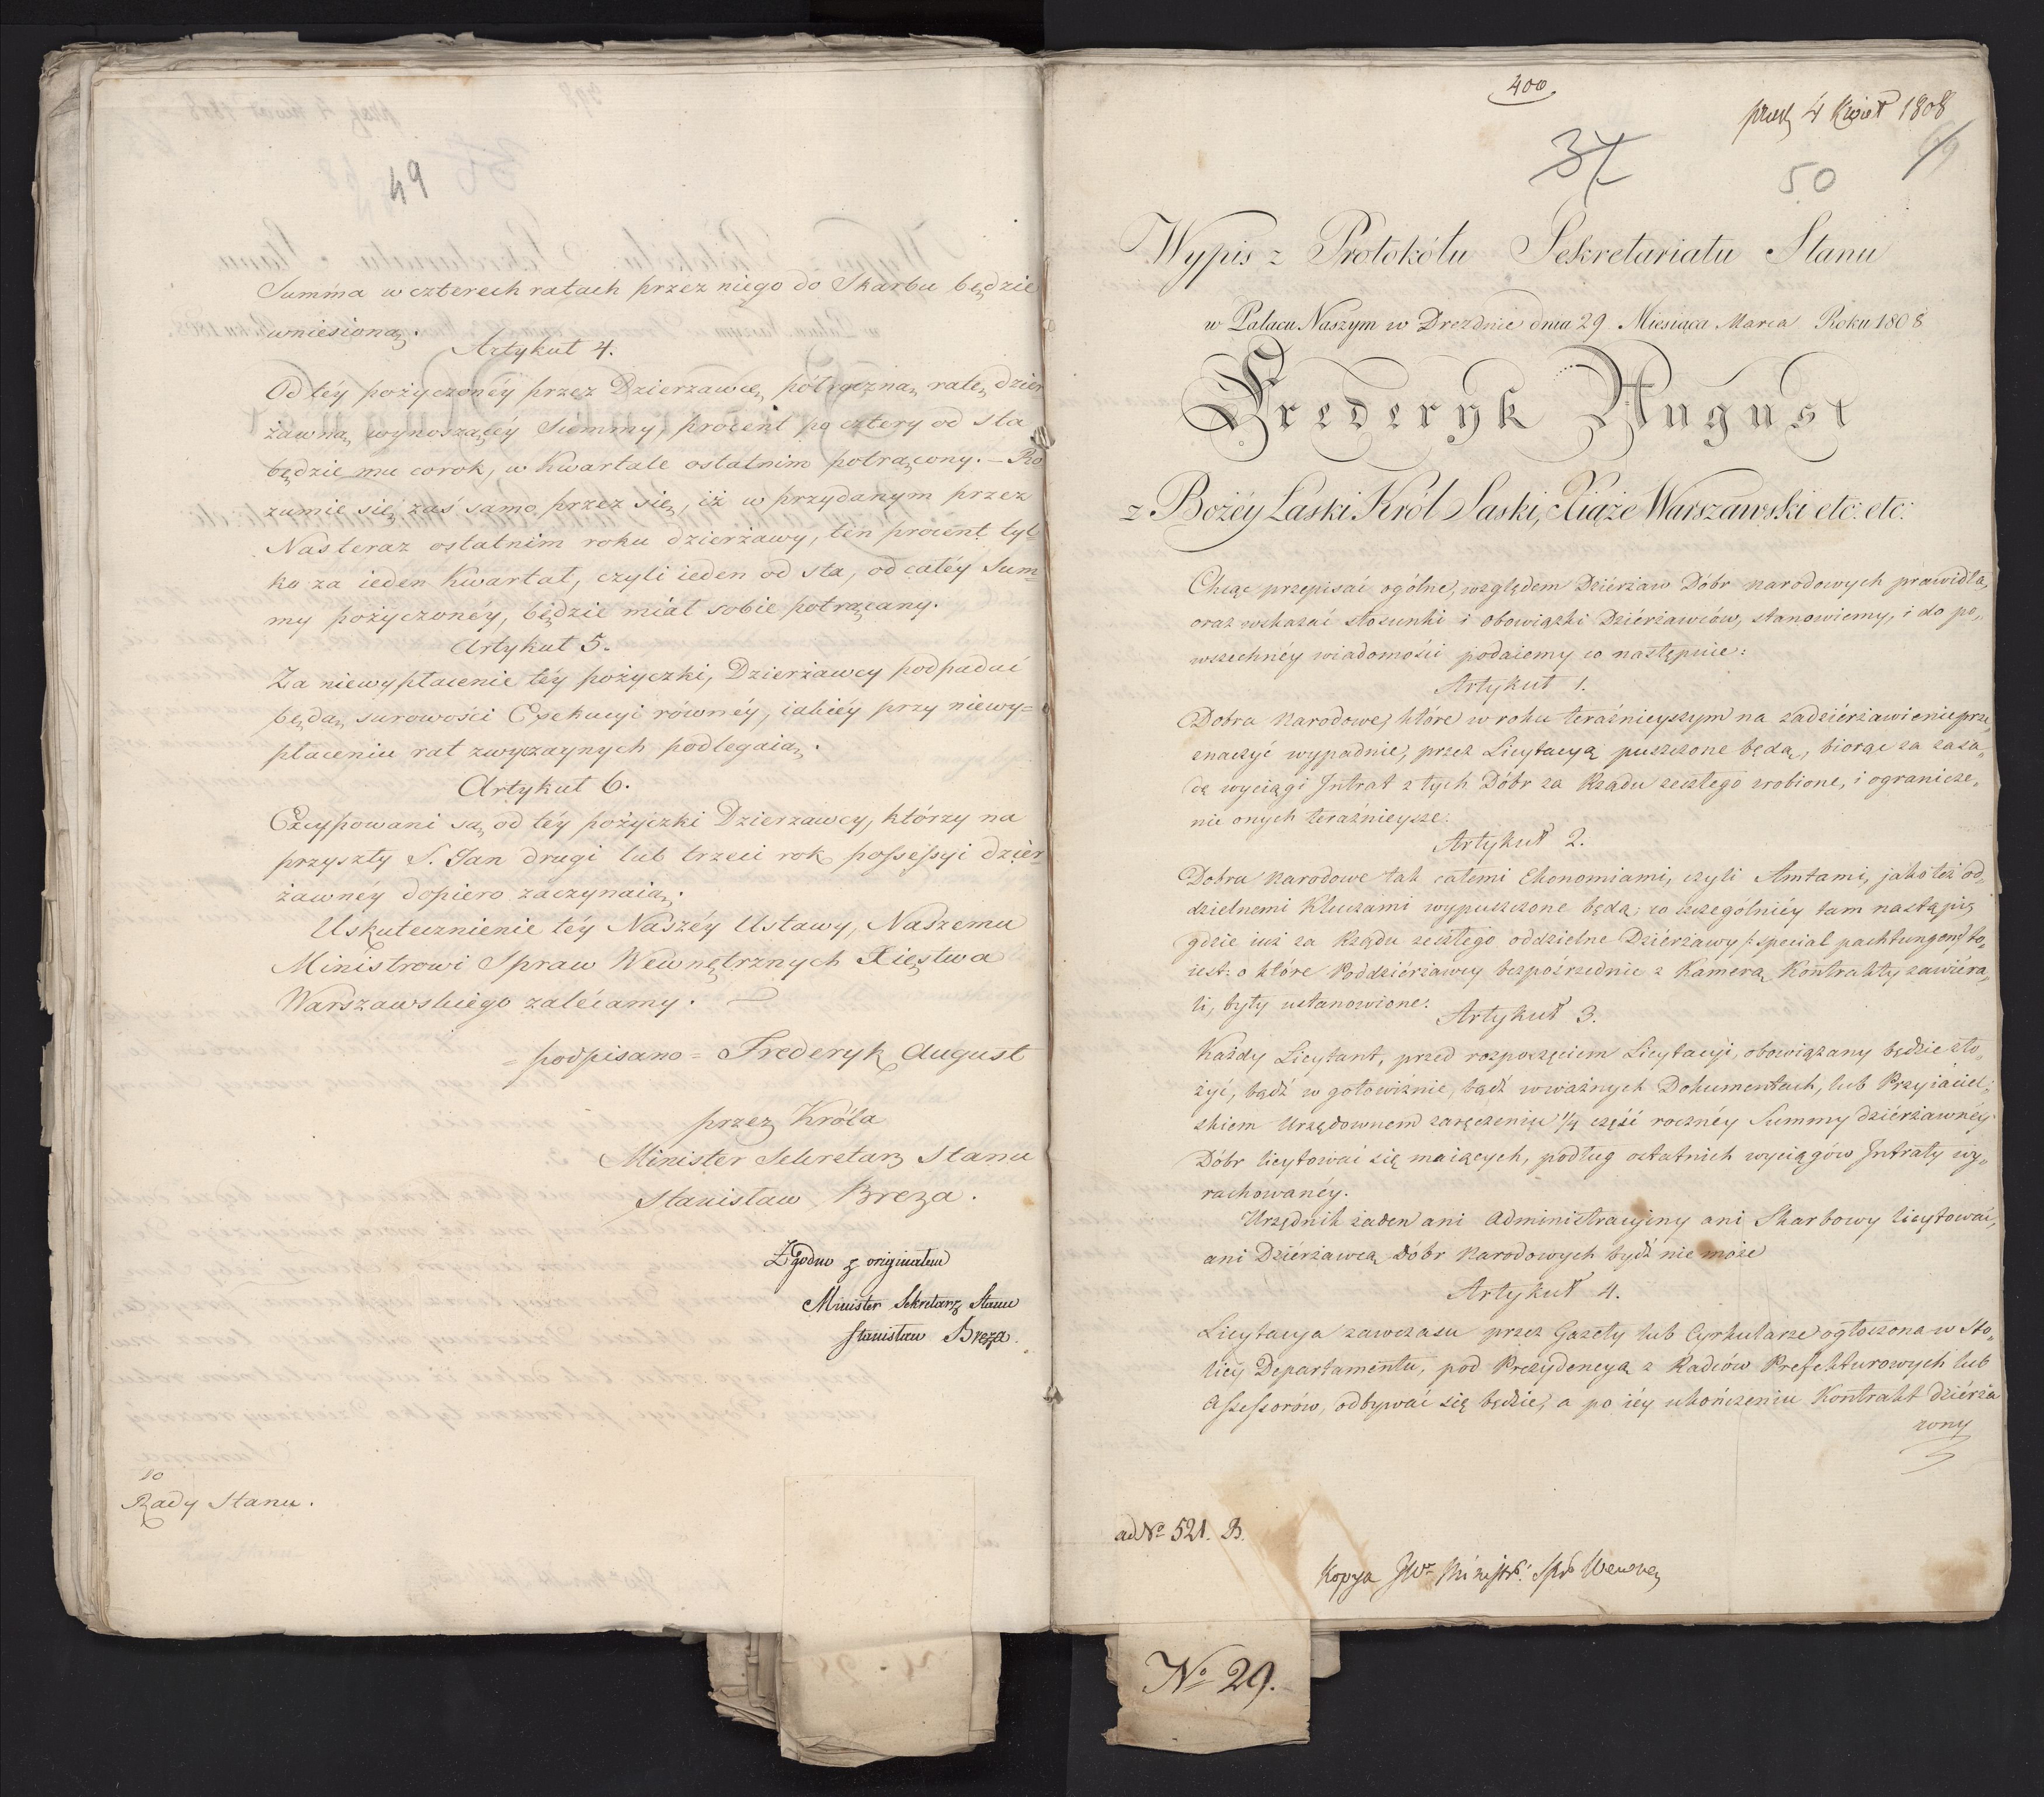 49
Summa w czterech ratach przez niego do Skarbu będzie
wniesioną.
Artykuł 4.
Od téy pożyczonéy przez Dzierzawcę, półroczną ratę dzier
żawną wynoszącéy Summy, procent po cztery od sta
będzie mu corok, w Kwartale ostatnim potrącony. – Ro
zumie się zaś samo przez się, iż w przydanym przez
Nas teraz ostatnim roku dzierżawy, ten procent tyl=
ko za ieden Kwartał, czyli ieden od sta, od całéy Sum=
my pożyczonéy, będzie miał sobie potrącany.
Artykuł 5.
Za niewypłacenie téy pożyczki, Dzierżawcy podpadać
będą, surowości Exekucyi równéy, iakiéy przy niewy=
płaceniu rat zwyczaynych podlegaią.
Artykuł 6.
Excypowani są od téy pożyczki Dzierzawcy, którzy na
przyszły S. Jan drugi lub trzeci rok possessyi dzier=
żawnéy dopiero zaczynaią.
Uskutecznienie téy Naszéy Ustawy, Naszemu
Ministrowi Spraw Wewnętrznych Xięstwa
Warszawskiego zalécamy.
= podpisano = Frederyk August
przez Króla
Minister Sekretarz Stanu
Stanisław Breza.
Zgodno z originałem
Minister Sekretarz Stanu
Stanisław Breza.
do
Rady Stanu.
400
4 Kwiet 1808
37
50
Wypis z Protokółu Sekretariatu Stanu
w Pałacu Naszym w Dreznie dnia 29 Miesiąca Marca Roku 1808
Frederyk August
z Bożéy Łaski Król Saski, Xiąże Warszawski etc: etc:
Chcąc przepisać ogólne, względem Dziérżaw Dóbr narodowych prawidła,
oraz wskazać stosunki i obowiązki Dziérżawców, stanowiemy, i do po„
wszechnéy wiadomości podaiemy co następuie:
Artykuł 1.
Dobra Narodowe, które w roku teraźnieyszym na zadziérżawienie prze„
znaczyć wypadnie, przez Licytacyą puszczone będą, biorąc za zasa„
dę wyciągi Intrat z tych Dóbr za Rządu zeszłego zrobione, i ogranicze„
nie onych teraźnieysze.
Artykuł 2.
Dobra Narodowe tak całemi Ekonomiami, czyli Amtami, jako też od„
dzielnemi Kluczami wypuszczone będą; co szczególniéy tam nastąpi,
gdzie iuż za Rządu zeszłego oddzielne Dziérżawy /: special pachtungen :/ to„
iest: o które Poddziérżawcy bezpośrzednie z Kamerą Kontrakty zawiéra„
li, były ustanowione.
Artykuł 3.
Każdy Licytant, przed rozpoczęciem Licytacyi, obowiązany będzie zło„
żyć, bądź w gotowiźnie, bądź w ważnych Dokumentach, lub Przyiaciel„
skiem Urzędownem zaręczeniu 1/4 część rocznéy Summy dziérżawnéy
Dóbr licytować się maiących, podług ostatnich wyciągów Intraty wy„
rachowanéy.
Urzędnik żaden ani Administracyiny ani Skarbowy licytować,
ani Dziérżawcą Dóbr Narodowych bydź nie może
Artykuł 4.
Licytacya zawczasu przez Gazety lub Cyrkularze ogłoszona w Sto„
licy Departamentu, pod Prezydencyą z Radców Prefekturowych lub
Assessorów, odbywać się będzie, a po iéy ukończeniu Kontrakt dziérża
wny
ad No 521. B.
Kopya JWo Ministr: Spr Wewnę
No 29.